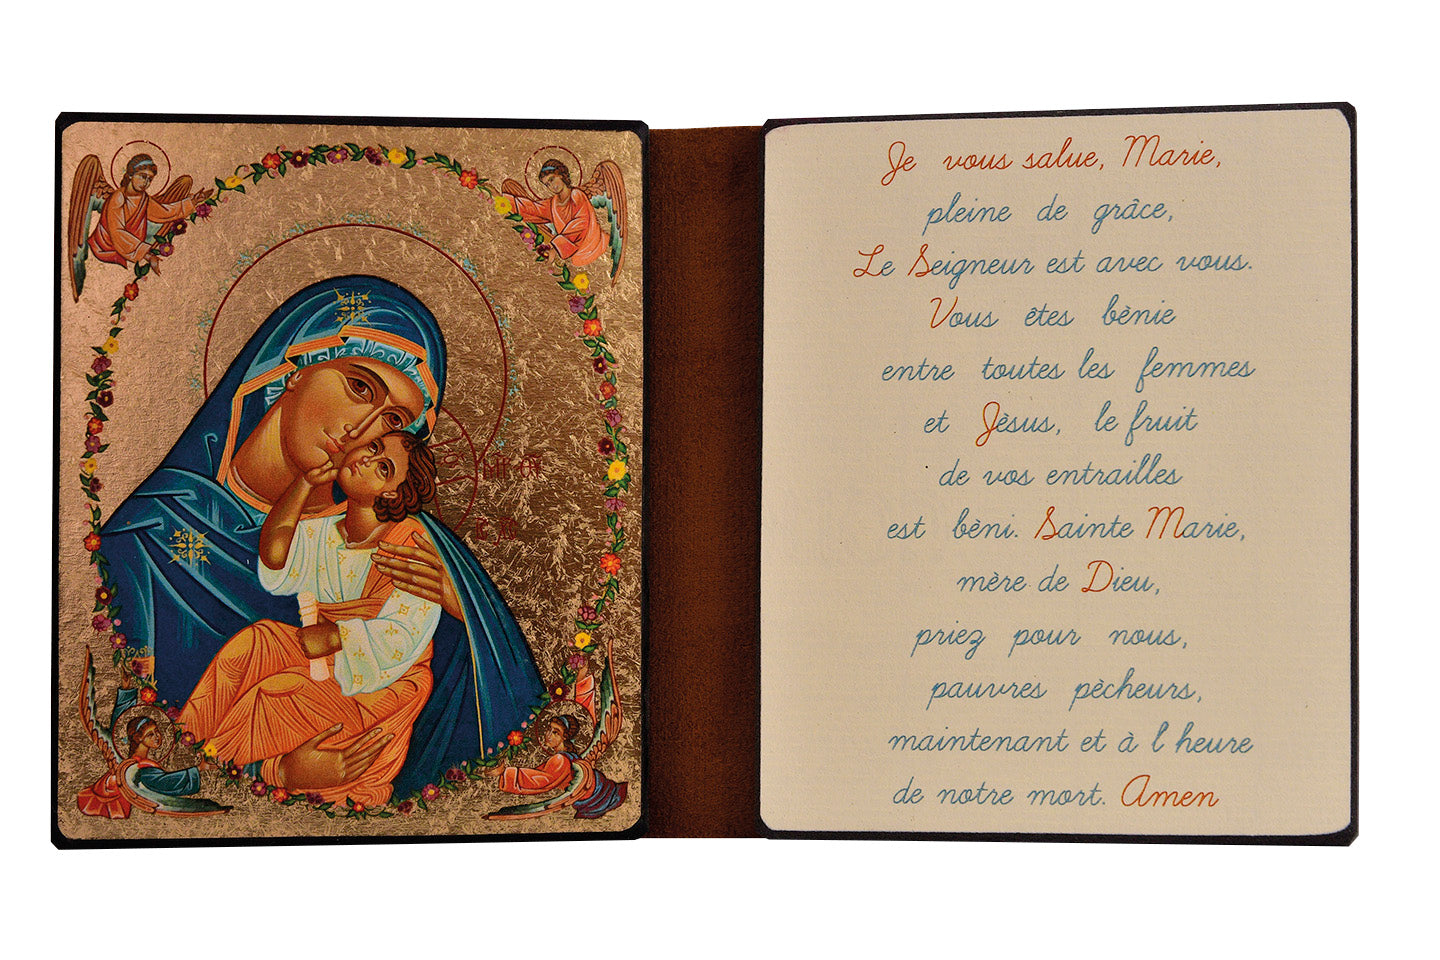 Je vous salue, Marie,
pleine de grâce,
Le Seigneur est avec vous.
Vous êtes bènie
entre toutes les femmes
et Jèsus, le fruit
de vos entrailles
est bèni. Sainte Marie,
mère de Dieu,
priez pour nous,
pauvres pècheurs,
maintenant et à l heure
de notre mort. Amen